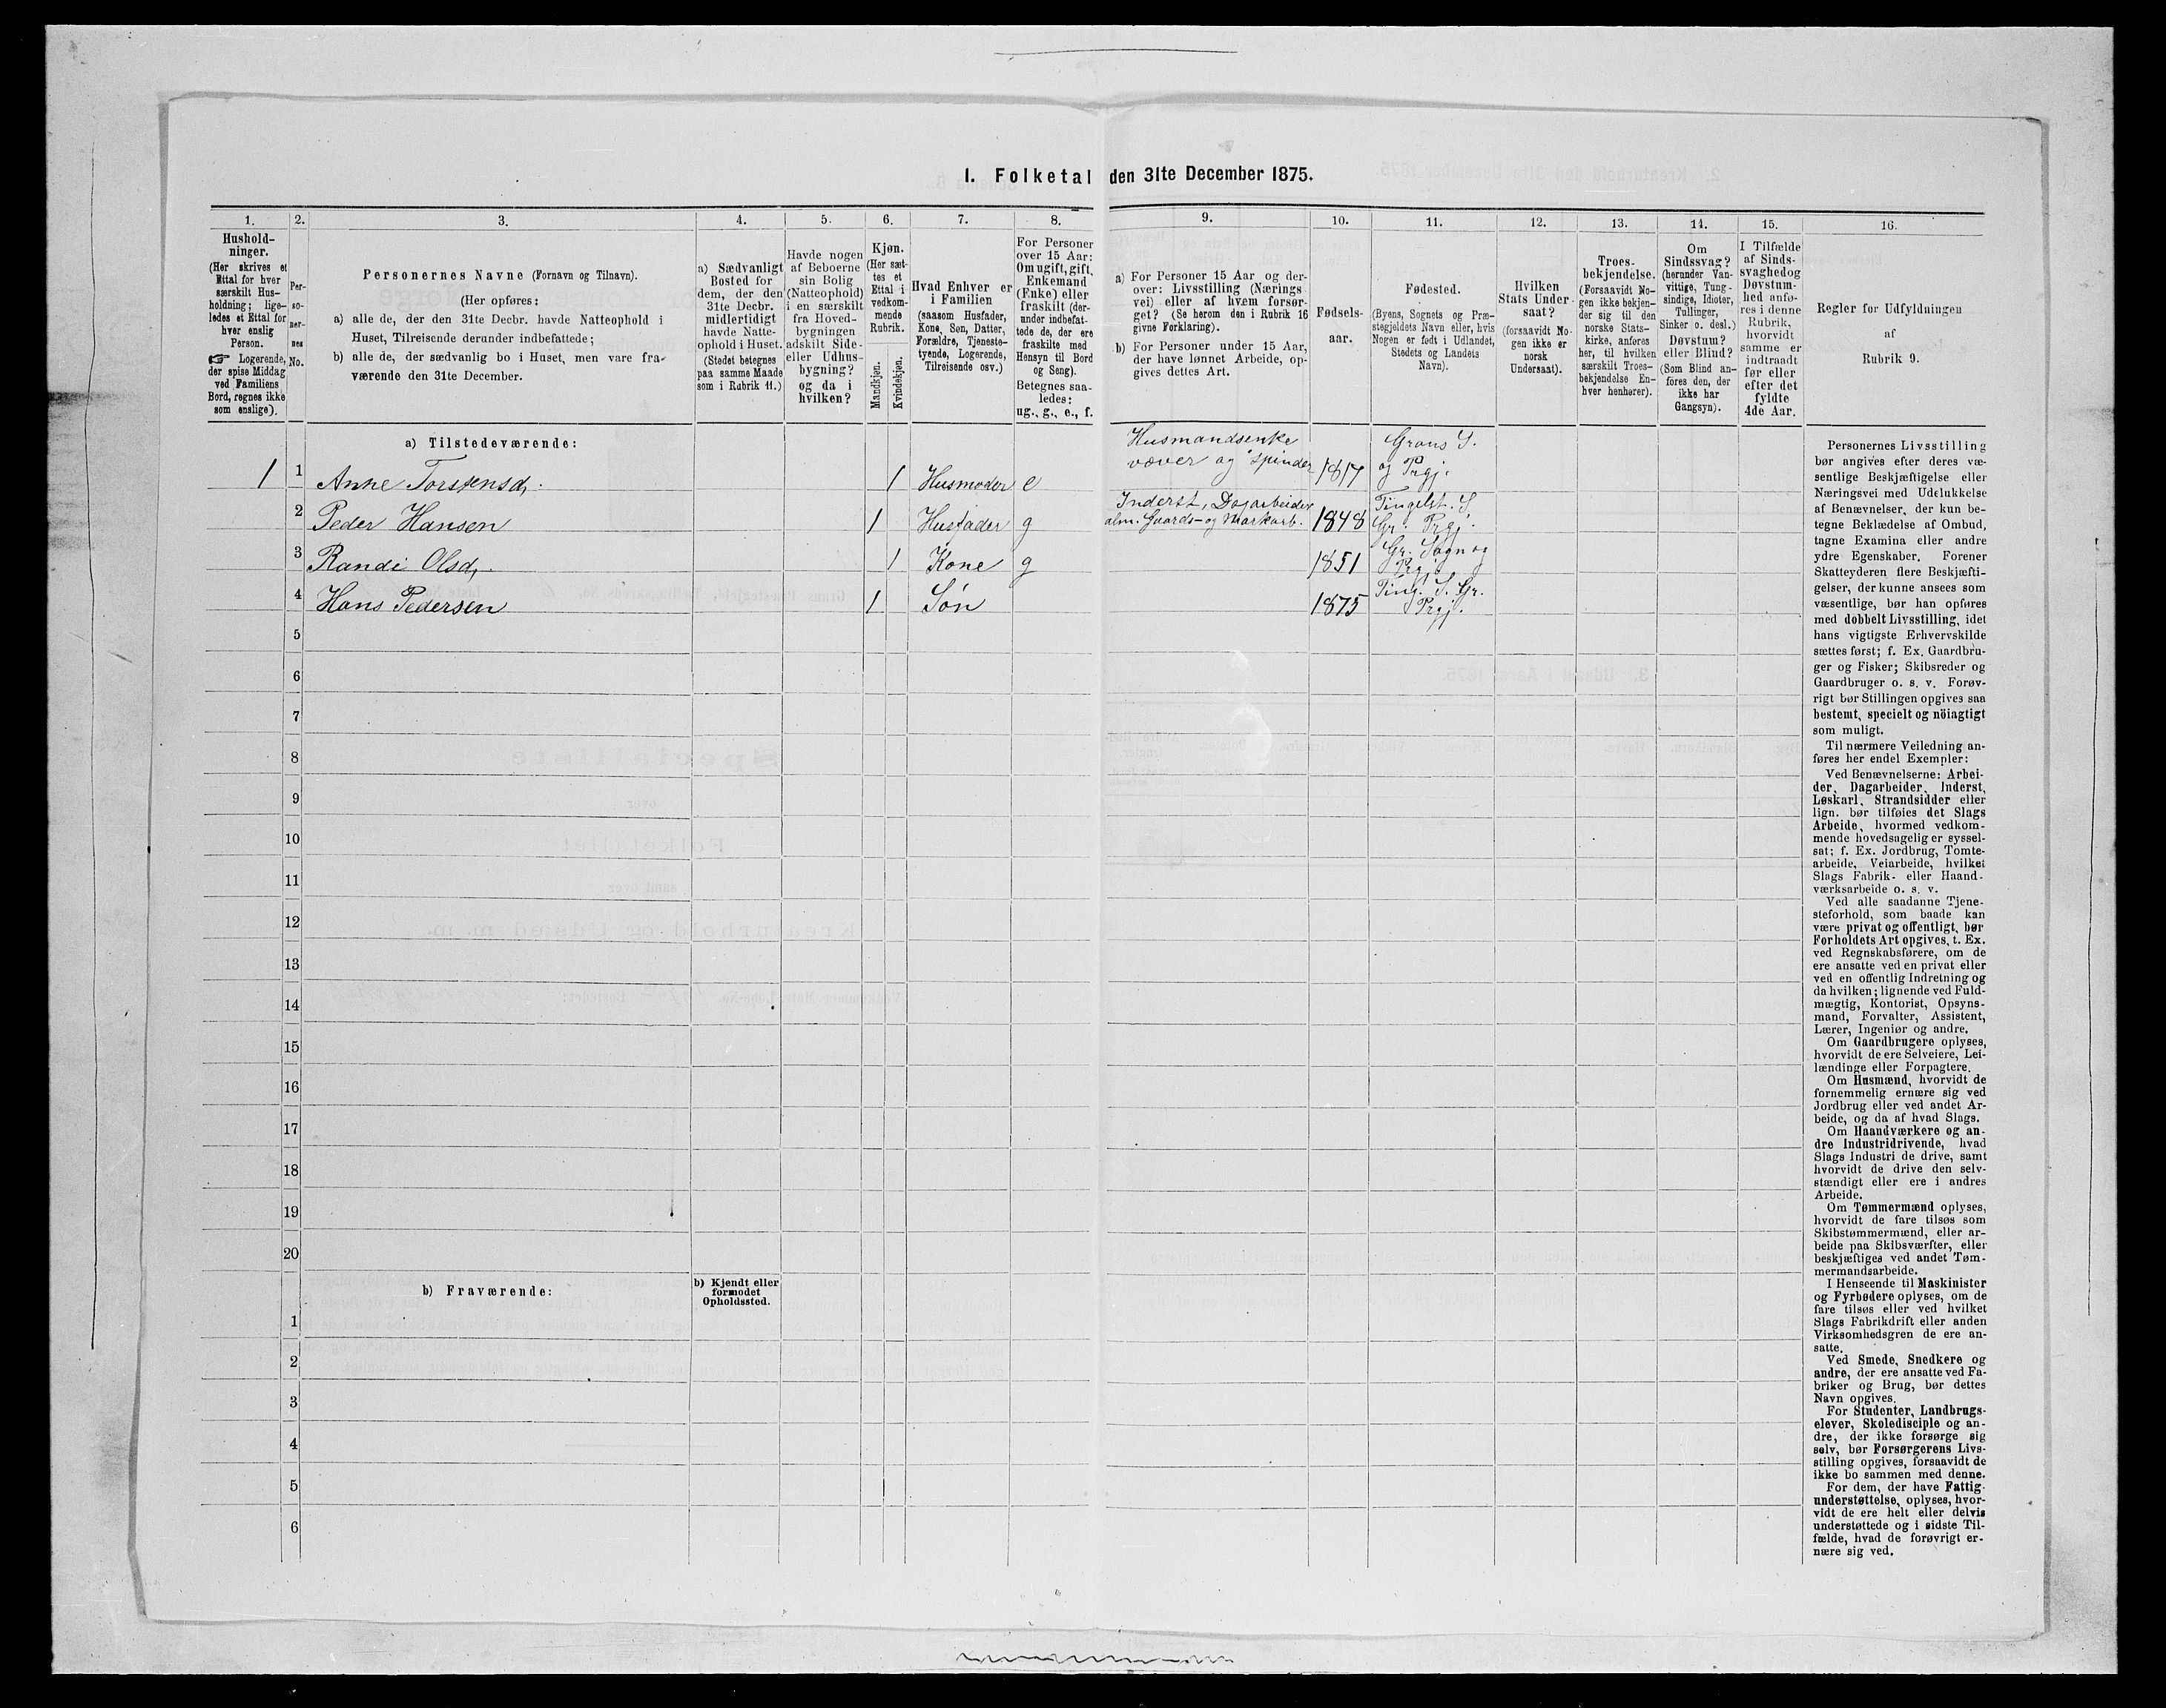 1. Folketal den 31te December 1875.
1.
2.
3.
4.
5.
6.
7.
8.
9.
10.
11.
12.
13.
14.
15.
16.
Hushold-
ninger.
(Her skrives et
Ettal for hver
særskilt Hus-
holdning; lige-
ledes et Ettal for
hver enslig
Person.
☞ Logerende,
der spise Middag
ved Familiens
Bord, regnes ikke
som enslige).
Per-
so-
ner-
nes
No.
Personernes Navne (Fornavn og Tilnavn).
(Her opføres:
a) alle de, der den 31te Decbr. havde Natteophold i
Huset, Tilreisende derunder indbefattede;
b) alle de, der sædvanlig bo i Huset, men vare fra-
værende den 31te December.
a) Sædvanligt
Bosted for
dem, der den
31te Decbr.
midlertidigt
havde Natte-
ophold i Huset.
(Stedet betegnes
paa samme Maade
som i Rubrik 11.)
Havde nogen
af Beboerne
sin Bolig
(Natteophold)
i en særskilt
fra Hoved-
bygningen
adskilt Side-
eller Udhus-
bygning?
og da i
hvilken?
Kjøn.
(Her sæt-
tes et
Ettal i
vedkom-
mende
Rubrik.
Mandkjøn.
Kvindekjøn.
Hvad Enhver er
i Familien
(saasom Husfader,
Kone, Søn, Datter,
Forældre, Tjeneste-
tyende, Logerende,
Tilreisende osv.)
For Personer
over 15 Aar:
Om ugift, gift,
Enkemand
(Enke) eller
fraskilt (der-
under indbefat-
tede de, der ere
fraskilte med
Hensyn til Bord
og Seng).
Betegnes saa-
ledes:
ug., g., e., f.
a) For Personer 15 Aar og der-
over: Livsstilling (Nærings
vei) eller af hvem forsør-
get? (Se herom den i Rubrik 16
givne Forklaring).
b) For Personer under 15 Aar,
der have lønnet Arbeide, op-
gives dettes Art.
Fødsels-
aar.
Fødested.
(Byens, Sognets og Præ-
stegjeldets Navn eller, hvis
Nogen er født i Udlandet,
Stedets og Landets
Navn).
Hvilken
Stats Under-
saat?
(forsaavidt No-
gen ikke er
norsk
Undersaat).
Troes-
bekjendelse.
(Forsaavidt No-
gen ikke bekjen-
der sig til den
norske Stats-
kirke, anføres
her, til hvilken
særskilt Troes-
bekjendelse En-
hver henhører).
Om
Sindssvag?
(herunder Van-
vittige, Tung-
sindige, Idioter,
Tullinger,
Sinker o. desl.)
Døvstum?
eller Blind?
(Som Blind an-
føres den, der
ikke har
Gangsyn).
I Tilfælde
af Sinds-
svaghedog
Døvstum-
hed anfø-
res i denne
Rubrik,
hvorvidt
samme er
indtraadt
før eller
efter det
fyldte
4de Aar.
Regler for Udfyldningen
af
Rubrik 9.
a) Tilstedeværende:
Husmandsenke
Grans S.
1 1 Anne Torstensd. 1 Husmoder e væver og spinder 1817 og Prgj.
Inderst, Dagarbeider Tingelst. S.
2 Peder Hansen 1 Husfader g alm. Gaards- og Markarb. 1848 Gr. Prgj.
Gr. Sogn og
3 Randi Olsd. 1 Kone g 1851 Prgj.
Ting. S. Gr.
4 Hans Pedersen 1 Søn 1875 Prgj.
5
6
7
8
9
10
11
12
13
14
15
16
17
18
19
20
b) Fraværende:
b) Kjendt eller
formodet
Opholdssted.
1
2
3
4
5
6
Personernes Livsstilling
bør angives efter deres væ-
sentlige Beskjæftigelse eller
Næringsvei med Udelukkelse
af Benævnelser, der kun be-
tegne Beklædelse af Ombud,
tagne Examina eller andre
ydre Egenskaber. Forener
Skatteyderen flere Beskjæfti-
gelser, der kunne ansees som
væsentlige, bør han opføres
med dobbelt Livsstilling, idet
hans vigtigste Erhvervskilde
sættes først; f. Ex. Gaardbru-
ger og Fisker; Skibsreder og
Gaardbruger o. s. v. Forøv-
rigt bør Stillingen opgives saa
bestemt, specielt og nöiagtigt
som muligt.
Til nærmere Veiledning an-
føres her endel Exempler:
Ved Benævnelserne: Arbei-
der, Dagarbeider, Inderst,
Løskarl, Strandsidder eller
lign. bør tilføies det Slags
Arbeide, hvormed vedkom-
mende hovedsagelig er syssel-
sat; f. Ex. Jordbrug, Tomte-
arbeide, Veiarbeide, hvilket
Slags Fabrik- eller Haand-
værksarbeide o. s. v.
Ved alle saadanne Tjene-
steforhold, som baade kan
være privat og offentligt, bør
Forholdets Art opgives, t. Ex.
ved Regnskabsførere, om de
ere ansatte ved en privat eller
ved en offentlig Indretning og
da hvilken; lignende ved Fuld-
mægtig, Kontorist, Opsyns-
mand, Forvalter, Assistent,
Lærer, Ingeniør og andre.
Om Gaardbrugere oplyses,
hvorvidt de ere Selveiere, Lei-
lændinge eller Forpagtere.
Om Husmænd, hvorvidt de
fornemmelig ernære sig ved
Jordbrug eller ved andet Ar-
beide, og da af hvad Slags.
Om Haandværkere og an-
dre Industridrivende, hvad
Slags Industri de drive, samt
hvorvidt de drive den selv-
stændigt eller ere i andres
Arbeide.
Om Tømmermænd oplyses,
hvorvidt de fare tilsøs som
Skibstømmermænd, eller ar-
beide paa Skibsværfter, eller
beskjæftiges ved andet Tøm-
mermandsarbeide.
I Henseende til Maskinister
og Fyrbødere oplyses, om de
fare tilsøs eller ved hvilket
Slags Fabrikdrift eller anden
Virksomhedsgren de ere an-
satte.
Ved Smede, Snedkere og
andre, der ere ansatte ved Fa-
briker og Brug, bør dettes
Navn opgives.
For Studenter, Landbrugs-
elever, Skoledisciple og an-
dre, der ikke forsørge sig
selv, bør Forsørgerens Livs-
stilling opgives, forsaavidt de
ikke bo sammen med denne.
For dem, der have Fattig-
understøttelse, oplyses, hvor-
vidt de ere helt eller delvis
understøttede og i sidste Til-
fælde, hvad de forøvrigt er-
nære sig ved.